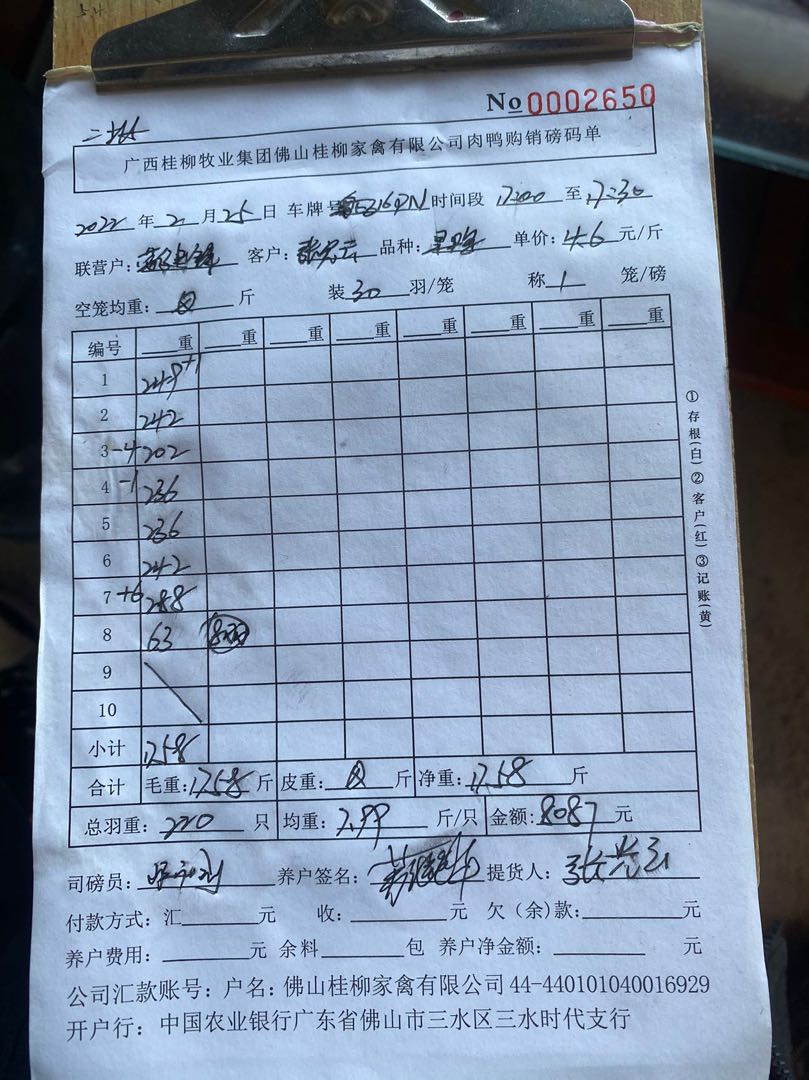 No 0002650
广西桂柳牧业集团佛山桂柳家禽有限公司肉鸭购销磅码单
2022 年 2 月 25 日 车牌号 5316DN 时间段 17:00 至 17:30
联营户: 客户: 品种: 单价: 4.6 元/斤
空笼均重: 斤 装 30 羽/笼 称 1 笼/磅
编号 重 重 重 重 重 重 重 重
1 249 +1
2 242
3 -4 202
4 -1 236
5 236
6 242
7 +6 288
8 63
9
10
小计 1758
合计 毛重: 1758 斤 皮重: 斤 净重: 1758 斤
总羽重: 220 只 均重: 7.99 斤/只 金额: 8087 元
司磅员: 养户签名: 提货人:
付款方式: 汇 元 收: 元 欠(余)款: 元
养户费用: 元 余料 包 养户净金额: 元
公司汇款账号: 户名: 佛山桂柳家禽有限公司 44-440101040016929
开户行: 中国农业银行广东省佛山市三水区三水时代支行
①存根(白)②客户(红)③记账(黄)